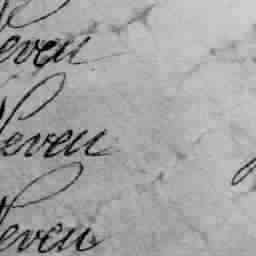 Neven
Neven
Neven